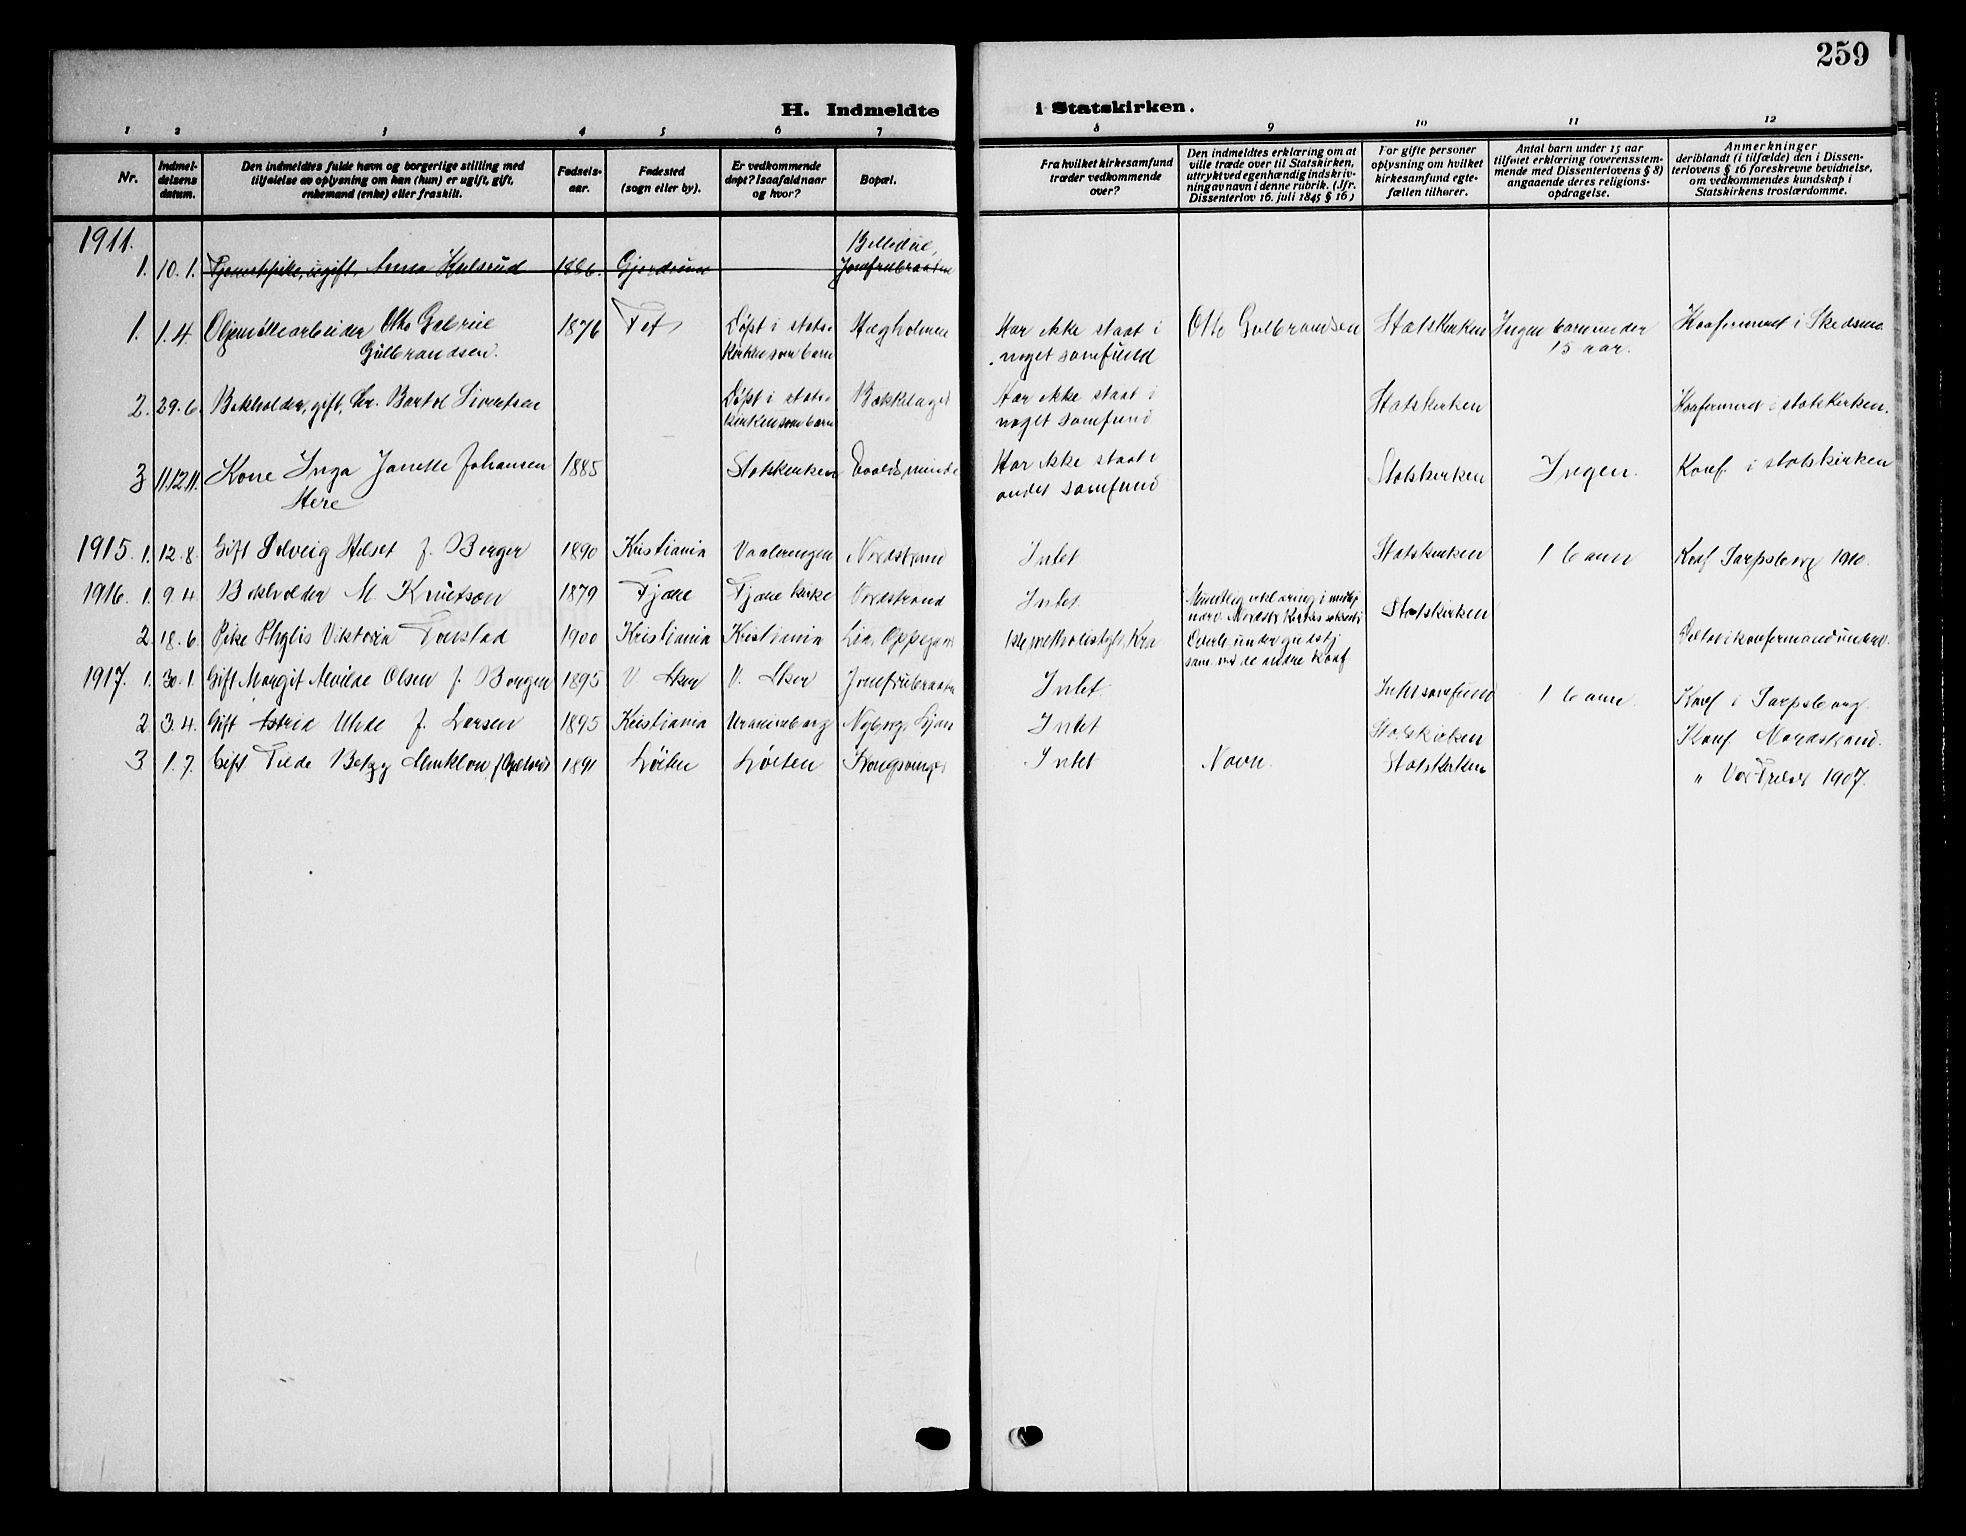 259
H. Indmeldte i Statskirken.
1 2 3 4 5 6 7 8 9 10 11 12
Nr.
Indmel-
delsens
datum.
Den indmeldtes fulde navn og borgerlige stilling med
tilføielse av oplysning om han (hun) er ugift, gift,
enkemand (enke) eller fraskilt.
Fødsels-
aar.
Fødested
(sogn eller by).
Er vedkommende
døpt? Isaafald naar
og hvor?
Bopæl.
Fra hvilket kirkesamfund
træder vedkommende
over?
Den indmeldtes erklæring om at
ville træde over til Statskirken,
uttrykt ved egenhændig indskriv-
ning av navn i denne rubrik. (Jfr.
Dissenterlov 16. juli 1845 § 16)
For gifte personer
oplysning om hvilket
kirkesamfund egte-
fællen tilhører.
Antal barn under 15 aar
tilføiet erklæring (overensstem-
mende med Dissenterlovens § 8)
angaaende deres religions-
opdragelse.
Anmerkninger
deriblandt (i tilfælde) den i Dissen-
terlovens § 16 foreskrevne bevidnelse,
om vedkommendes kundskap i
Statskirkens troslærdomme.
1911.
1. 10.1. Tjenestpike, ugift, Anna Kulsrud 1886. Gjerdrum
Jomfrubraaten
1. 1.4. Otto Gabriel 1876 Fet Døpt i stats- Har ikke staat i Otto Gulbrandsen Statskirken Ingen barn under Konfirmeret i Skedsmo
Gulbrandsen. kirken som barn noget samfund 15 aar.
2. 29.6. Bokholder, gift, Sivertsen Døpt i stats- Bækkelaget Har ikke staat i Statskirken Konfirmeret i statskirken.
kirken som barn noget samfund
3 11.12.11. Kone Inga Janette Johansen 1885 Statskirken Har ikke staat i Statskirken Ingen. Konf. i statskirken
andet samfund
1915. 1. 12.8. Gift Solveig Helset f. Berger 1890 Kristiania Vaalerengen Nordstrand Intet Statskirken 1 barn Konf Sarpsborg 1910.
1916. 1. 9.4. Bokholder M. Knutson 1879 Nordstrand Intet. Mundtlig erklæring i Statskirken
2 18.6. Pike Phylis Viktoria 1900 Kristiania Kristiania Lia, Oppegaard
1917. 1. 30.1. Gift Margit Alvilde Olsen f. Borgen 1895 V. Aker V. Aker Jomfrubraaten Intet Intet samfund 1 barn Konf i Sarpsborg.
2 3.4. Gift Astrid f. Larsen 1895 Kristiania Uranienborg Nyborg, Ljan Intet Statskirken Konf. Nordstrand.
3 1.7. Gift Betzy 1891 Løiten Løiten Kongsvinger Intet Navn. Statskirken " Vor Frelser 1907.